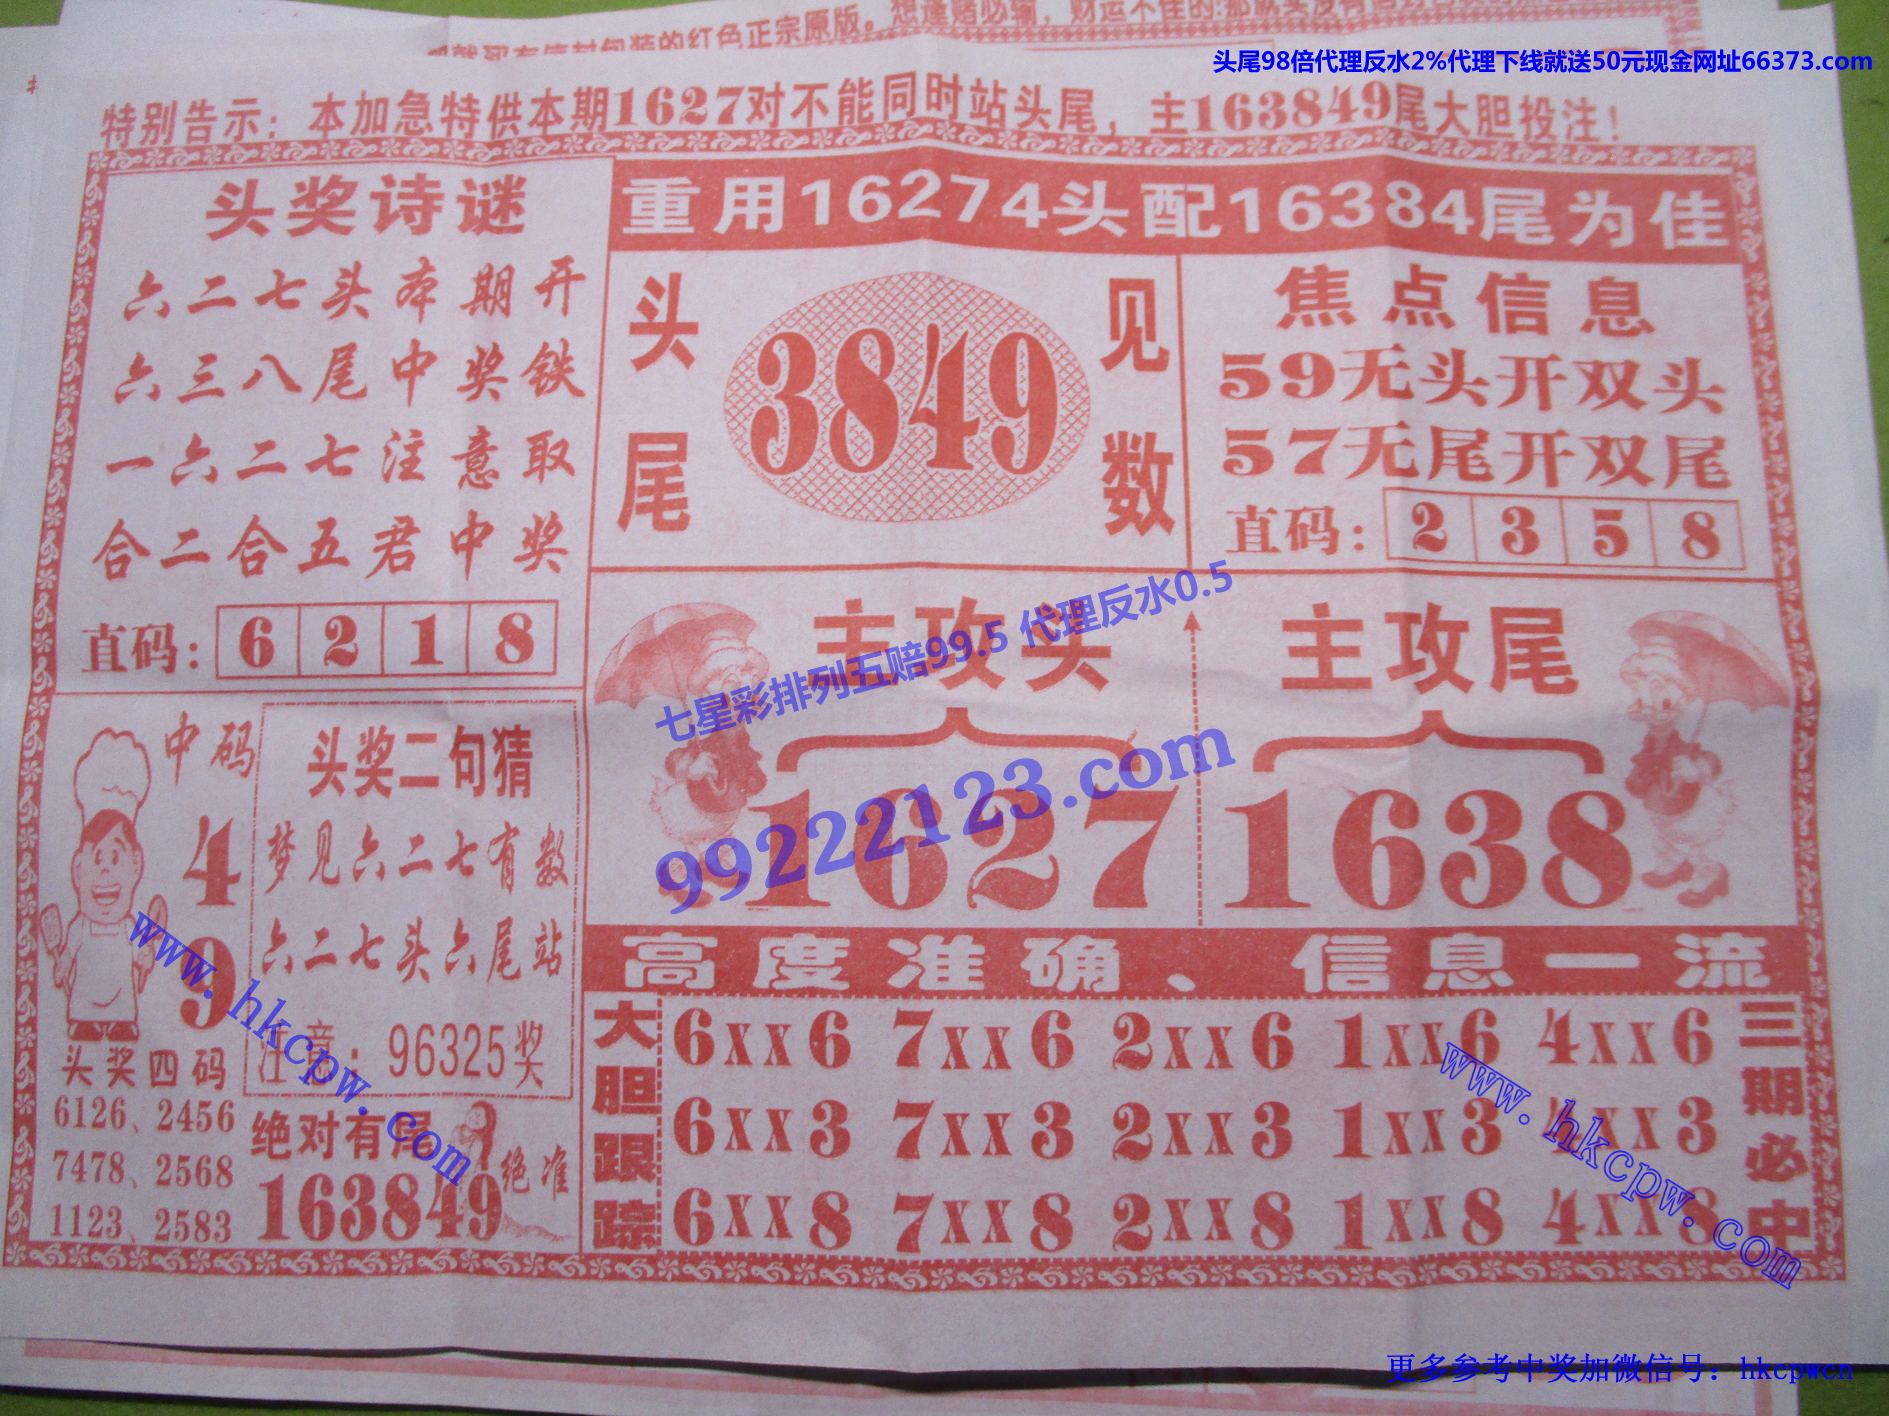 的红色正宗原版。想逢赌必输，财运不佳的:那就买没有
头尾98倍代理反水2%代理下线就送50元现金网址66373.com
特别告示：本加急特供本期1627对不能同时站头尾，主163849尾大胆投注！
头奖诗谜
六二七头本期开
六三八尾中奖铁
一六二七注意取
合二合五君中奖
直码：6 2 1 8
重用16274头配16384尾为佳
头尾
3849
见数
焦点信息
59无头开双头
57无尾开双尾
直码：2 3 5 8
主攻头
1627
主攻尾
1638
七星彩排列五赔99.5 代理反水0.5
99222123.com
中码
4
9
头奖四码
6126、2456
7478、2568
1123、2583
头奖二句猜
梦见六二七有数
六二七头六尾站
注意：96325奖
绝对有尾
163849
绝准
高度准确、信息一流
大胆跟踪
6XX6 7XX6 2XX6 1XX6 4XX6
6XX3 7XX3 2XX3 1XX3 4XX3
6XX8 7XX8 2XX8 1XX8 4XX8
三期必中
www.hkcpw.com
www.hkcpw.com
更多参考中奖加微信号：hkcpwcn